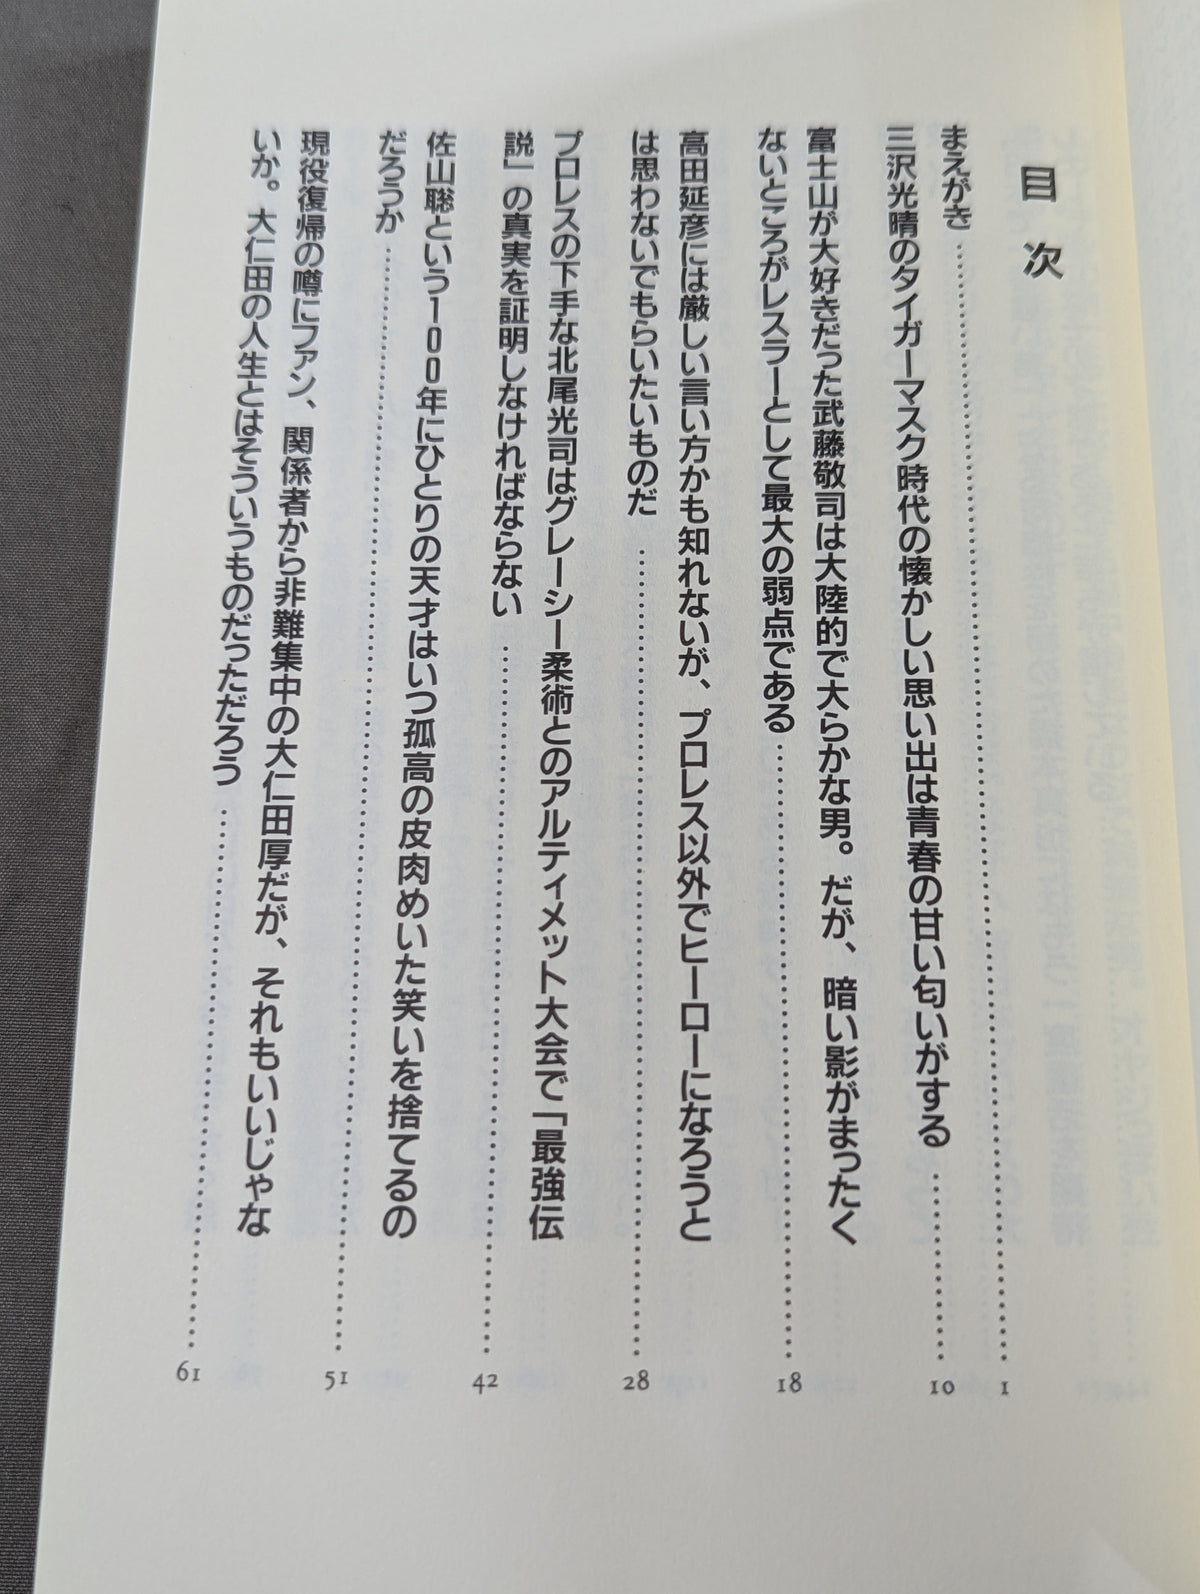 目次
まえがき……………………1
三沢光晴のタイガーマスク時代の懐かしい思い出は青春の甘い匂いがする……………10
富士山が大好きだった武藤敬司は大陸的で大らかな男。だが、暗い影がまったく
ないところがレスラーとして最大の弱点である……………18
高田延彦には厳しい言い方かも知れないが、プロレス以外でヒーローになろうと
は思わないでもらいたいものだ……………28
プロレスの下手な北尾光司はグレーシー柔術とのアルティメット大会で「最強伝
説」の真実を証明しなければならない……………42
佐山聡という100年にひとりの天才はいつ孤高の皮肉めいた笑いを捨てるの
だろうか……………51
現役復帰の噂にファン、関係者から非難集中の大仁田厚だが、それもいいじゃな
いか。大仁田の人生とはそういうものだっただろう……………61